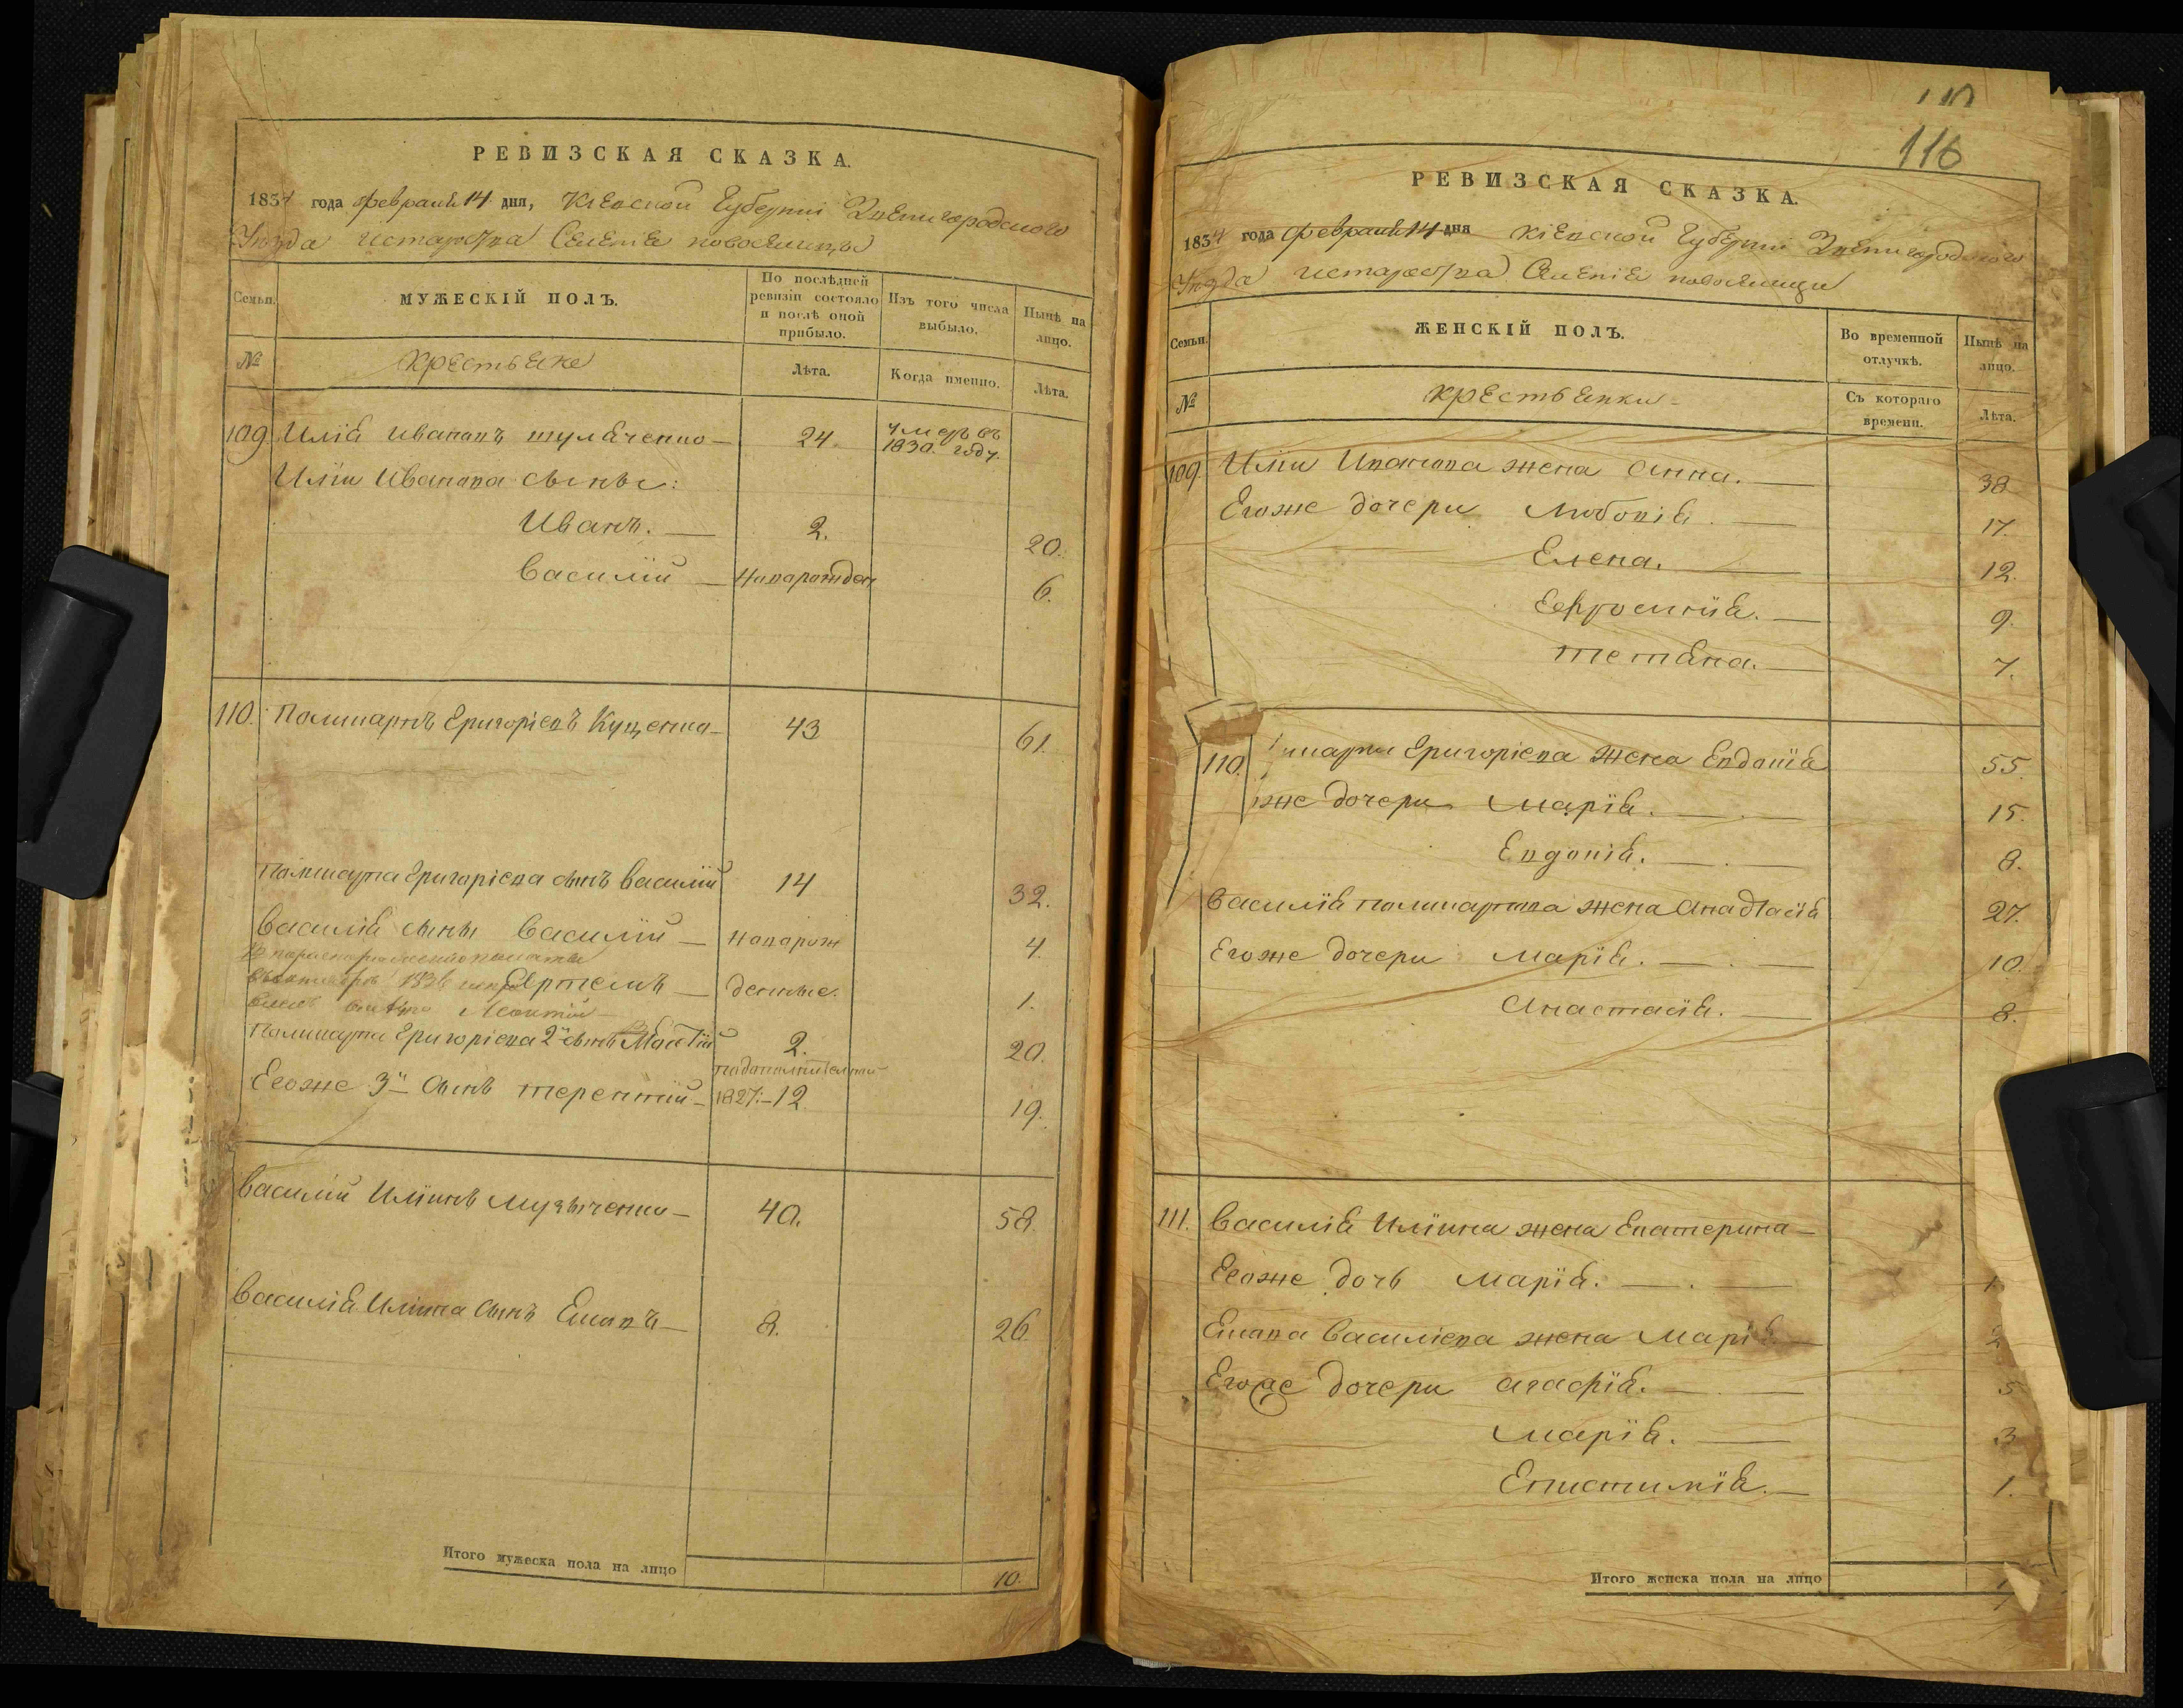 РЕВИЗСКАЯ СКАЗКА.
1834 года февраля 14 дня, Кіевской Губерніи Звенигородского
Уезда Староства Селенія новоселицы
Семьи.
МУЖЕСКІЙ ПОЛЪ.
По послѣдней ревизіи состояло и послѣ оной прибыло.
Изъ того числа выбыло.
Нынѣ на лицо.
№
крестьяне
Лѣта.
Когда именно.
Лѣта.
109. Илія Ивановъ 24. умеръ въ 1830. году.
Иліи Иванова сыны:
Иванъ. — 2. 20.
Василій — новорожден 6.
110. Поликарпъ Григоріевъ Куценко — 43 61.
Поликарпа Григоріева сынъ Василій 14 32.
Василія сыны Василій — новорож 4.
Артемъ — денные. 1.
Поликарпа Григоріева 2й сынъ 2. 20.
Егоже 3й сынъ терентій — 1827:-12 19.
Василій Иліинъ Музыченко — 40. 58.
Василія Иліина сынъ Емелянъ — 8. 26.
Итого мужеска пола на лицо 10.
116
РЕВИЗСКАЯ СКАЗКА.
1834 года февраля 14 дня Кіевской Губерніи Звенигородского
Уезда Староства Селенія новоселицы
Семьи.
ЖЕНСКІЙ ПОЛЪ.
Во временной отлучкѣ.
Нынѣ на лицо.
№
крестьянки —
Съ котораго времени.
Лѣта.
109. Иліи Иванова жена Анна. — 38
Егоже дочери Любовія. — 17.
Елена. — 12.
Ефросинія. — 9.
тетяна. — 7.
110. Григоріева жена Евдокія 55.
же дочери Марія. — 15.
Евдокія. — 8.
Василія Поликарпова жена Анастасія 27.
Егоже дочери Марія. — 10.
Анастасія. — 8.
111. Василія Иліина жена Екатерина —
Егоже дочь Марія. — 1
Василіева жена Марія — 2
Егоже дочери агафія. — 5
Марія. — 3
Епистимія. — 1.
Итого женска пола на лицо